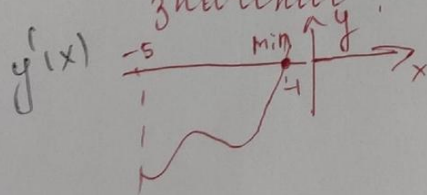 y'(x)
-5
min
y
-1
x